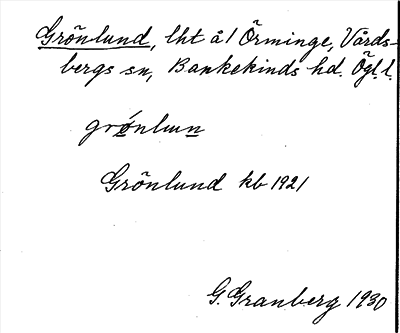 Grönlund, lht å 1 Örminge, Vårds-
bergs sn, Bankekinds hd. Ögl. l.
grǿnlɯn
Grönlund kb 1921
G. Granberg 1930